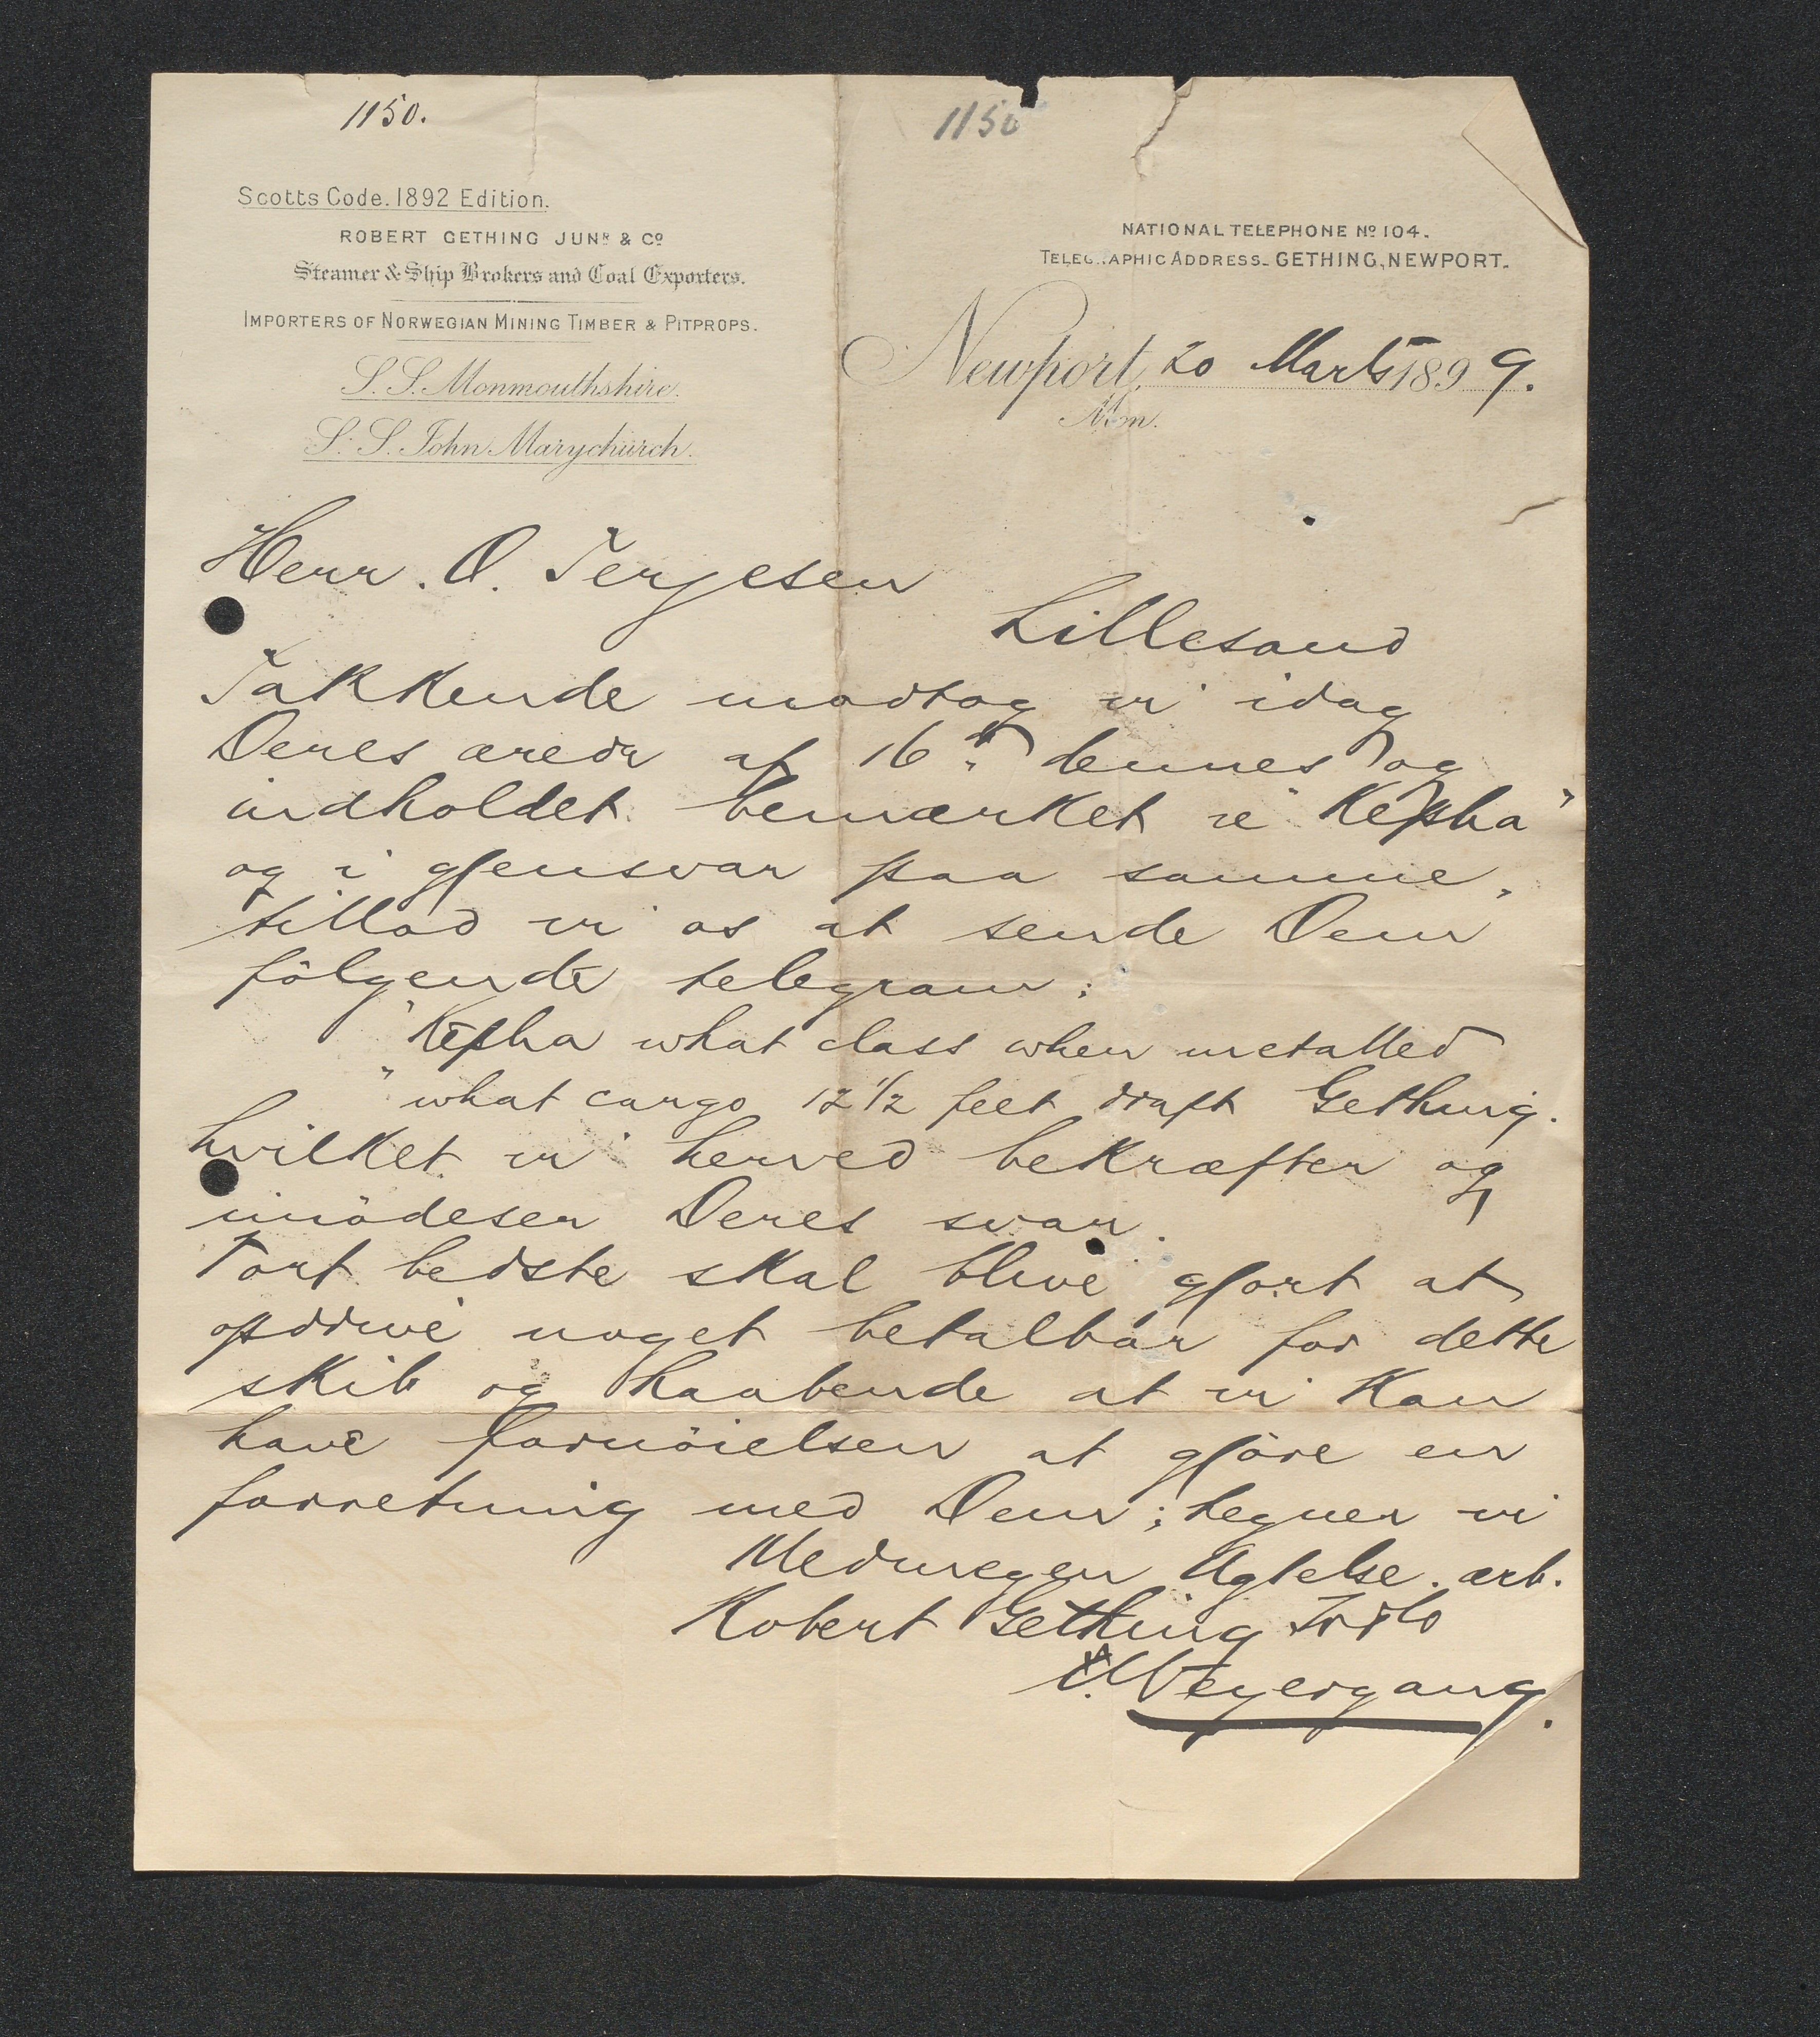 1150.
1150
Scotts Code. 1892 Edition.
ROBERT GETHING JUNR & Co
Steamer & Ship Brokers and Coal Exporters.
IMPORTERS OF NORWEGIAN MINING TIMBER & PITPROPS.
S.S. Monmouthshire.
S.S. John Marychurch.
NATIONAL TELEPHONE No 104.
TELEGRAPHIC ADDRESS_ GETHING, NEWPORT.
Newport, 20 Marts 1899.
Mon.
Herr. O. Terjesen
Lillesand
Takkende modtog vi idag
Deres ærede af 16de dennes og
indholdet bemærket re "Kepha"
og i gjensvar paa samme,
tillod vi os at sende Dem
følgende telegram:
"Kepha what class when metalled
"what cargo 12 1/2 feet draft Gething.
hvilket vi herved bekræfter og
imödeser Deres svar.
Vort bedste skal blive gjort at
opdrive noget betalbar for dette
skib og haabende at vi kan
have fornöielsen at gjöre en
forretning med Dem; tegner vi
Med megen Agtelse. ærb.
Robert Gething Jr & Co
Weyergang.